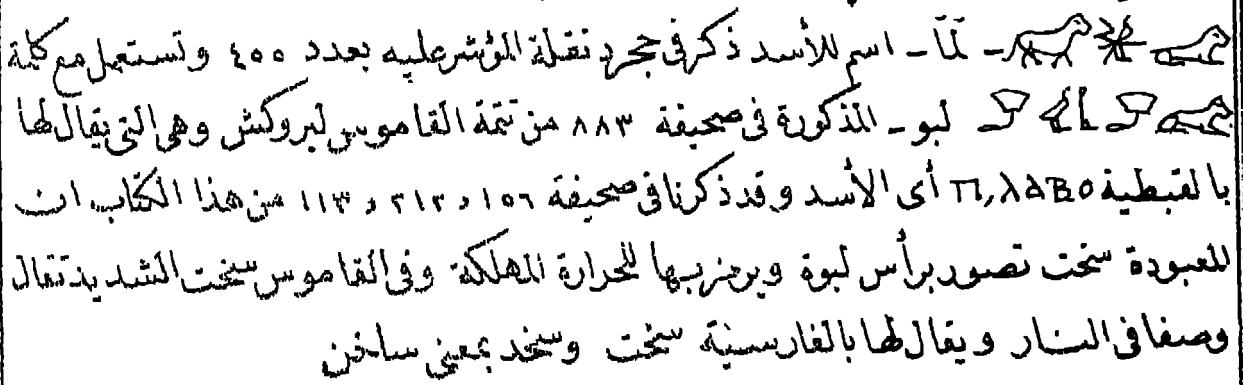 - لمّا - اسم للأسد ذكر فى حجر نقلة المؤشر عليه بعدد ٤٥٥ وتستعمل مع كلمة
لبو - المذكورة فى صحيفة ٨٨٣ من تتمة القاموس لبروكش وهى التى يقال لها
بالقبطية ⲡ,ⲗⲁⲃⲟ أى الأسد وقد ذكرنا فى صحيفة ١٥٦ و ٢١٢ و ١١٣ من هذا الكتاب ان
المعبودة سخت تصور برأس لبوة ويرمز بها للحرارة المهلكة وفى القاموس سخت الشديد تقال
وصفا فى النار ويقال لها بالفارسية سخت وسخد بمعنى ساخن